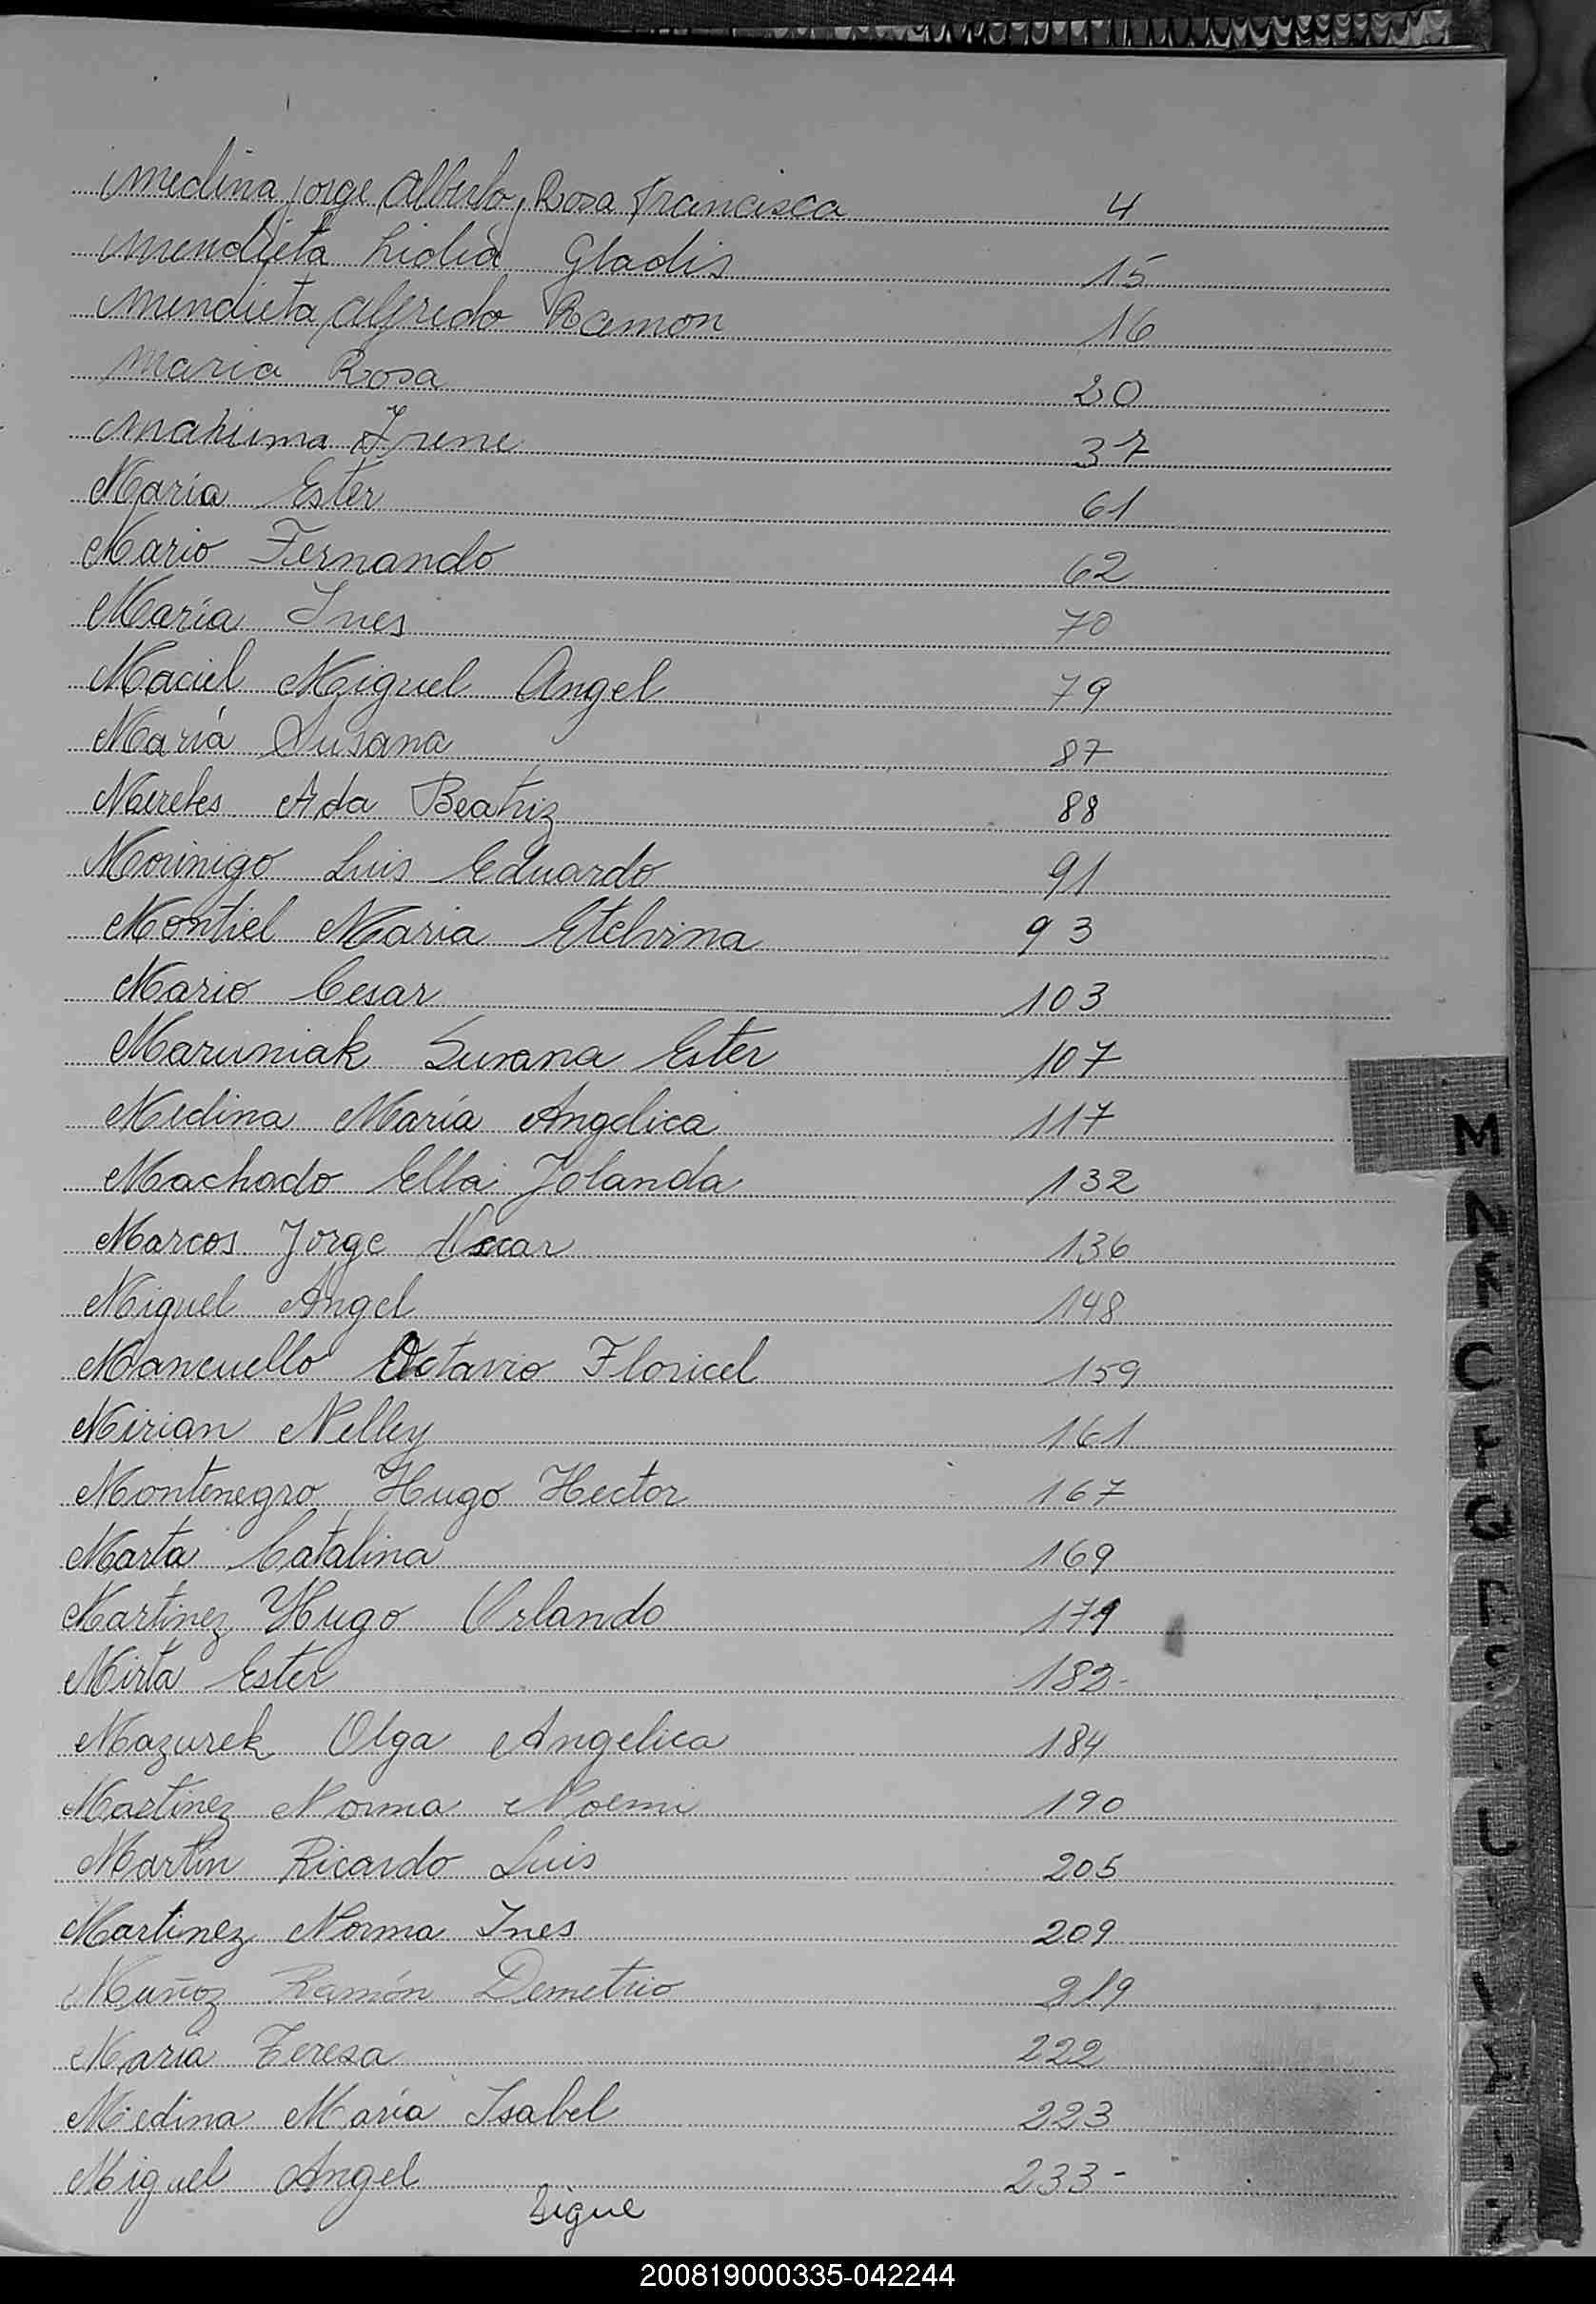 Medina Jorge Alberto, Rosa Francisca 4
Mendieta Lidia Gladis 15
Mendieta Alfredo Ramon 16
Maria Rosa 20
Irene 37
María Ester 61
Mario Fernando 62
María Ines 70
Maciel Miguel Angel 79
María Susana 87
Meretes Ada Beatriz 88
Morinigo Luis Eduardo 91
Montiel Maria Etelvina 93
Mario Cesar 103
Maruniak Susana Ester 107
Medina María Angelica 117
Machado Elba Jolanda 132
Marcos Jorge Oscar 136
Miguel Angel 148
Mancuello Octavio Floricel 159
Mirian Nelley 161
Montenegro Hugo Hector 167
Marta Catalina 169
Martinez Hugo Orlando 179
Mirta Ester 182-
Mazurek Olga Angelica 184
Martinez Norma Noemi 190
Martin Ricardo Luis 205
Martinez Norma Ines 209
Muñoz Ramón Demetrio 219
María Teresa 222
Medina María Isabel 223
Miguel Angel 233-
Sigue
M
N
200819000335-042244